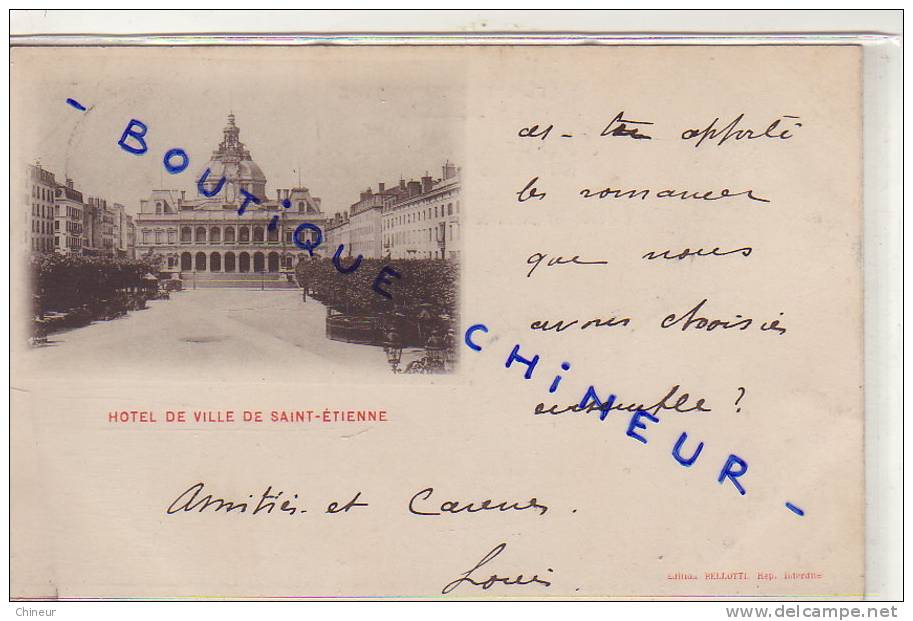 as-tu apporté
les romances
que nous
avons choisies
ensemble ?
HOTEL DE VILLE DE SAINT-ÉTIENNE
Amitiés et
Louis
Edition BELLOTTI. Rep. Interdite
- BOUTiQUE CHiNEUR -
Chineur
www.delcampe.net